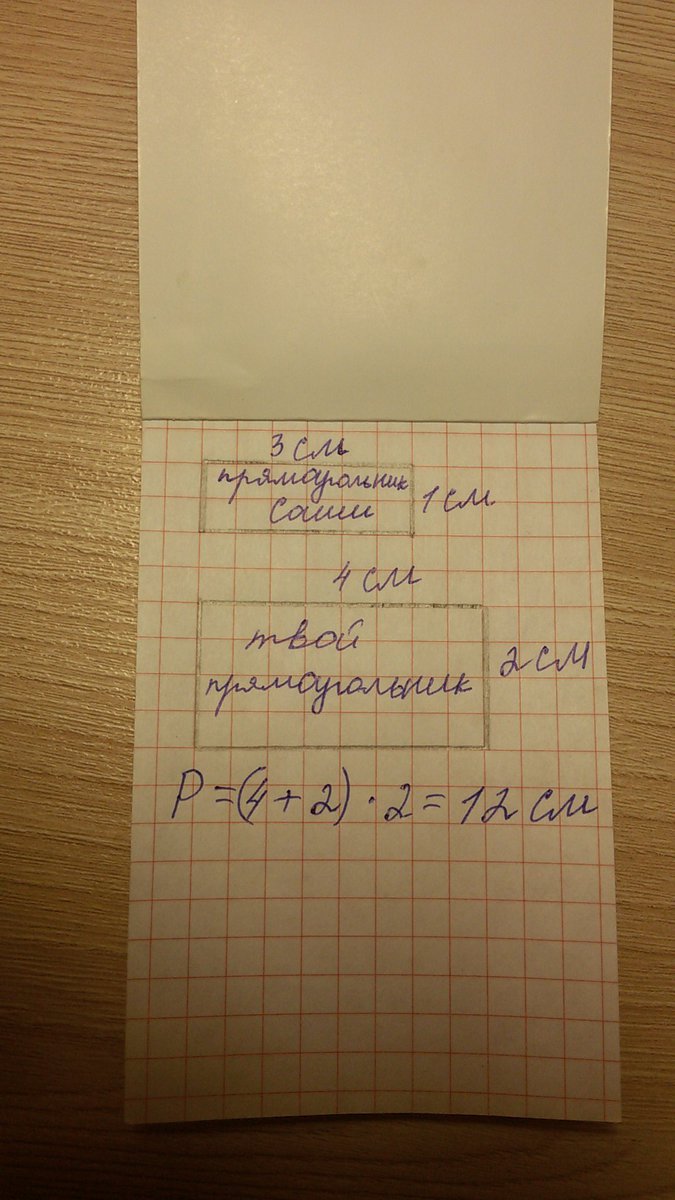 3 см
прямоугольник
Саши
1 см
4 см
твой
прямоугольник
2 см
P = (4 + 2) · 2 = 12 см